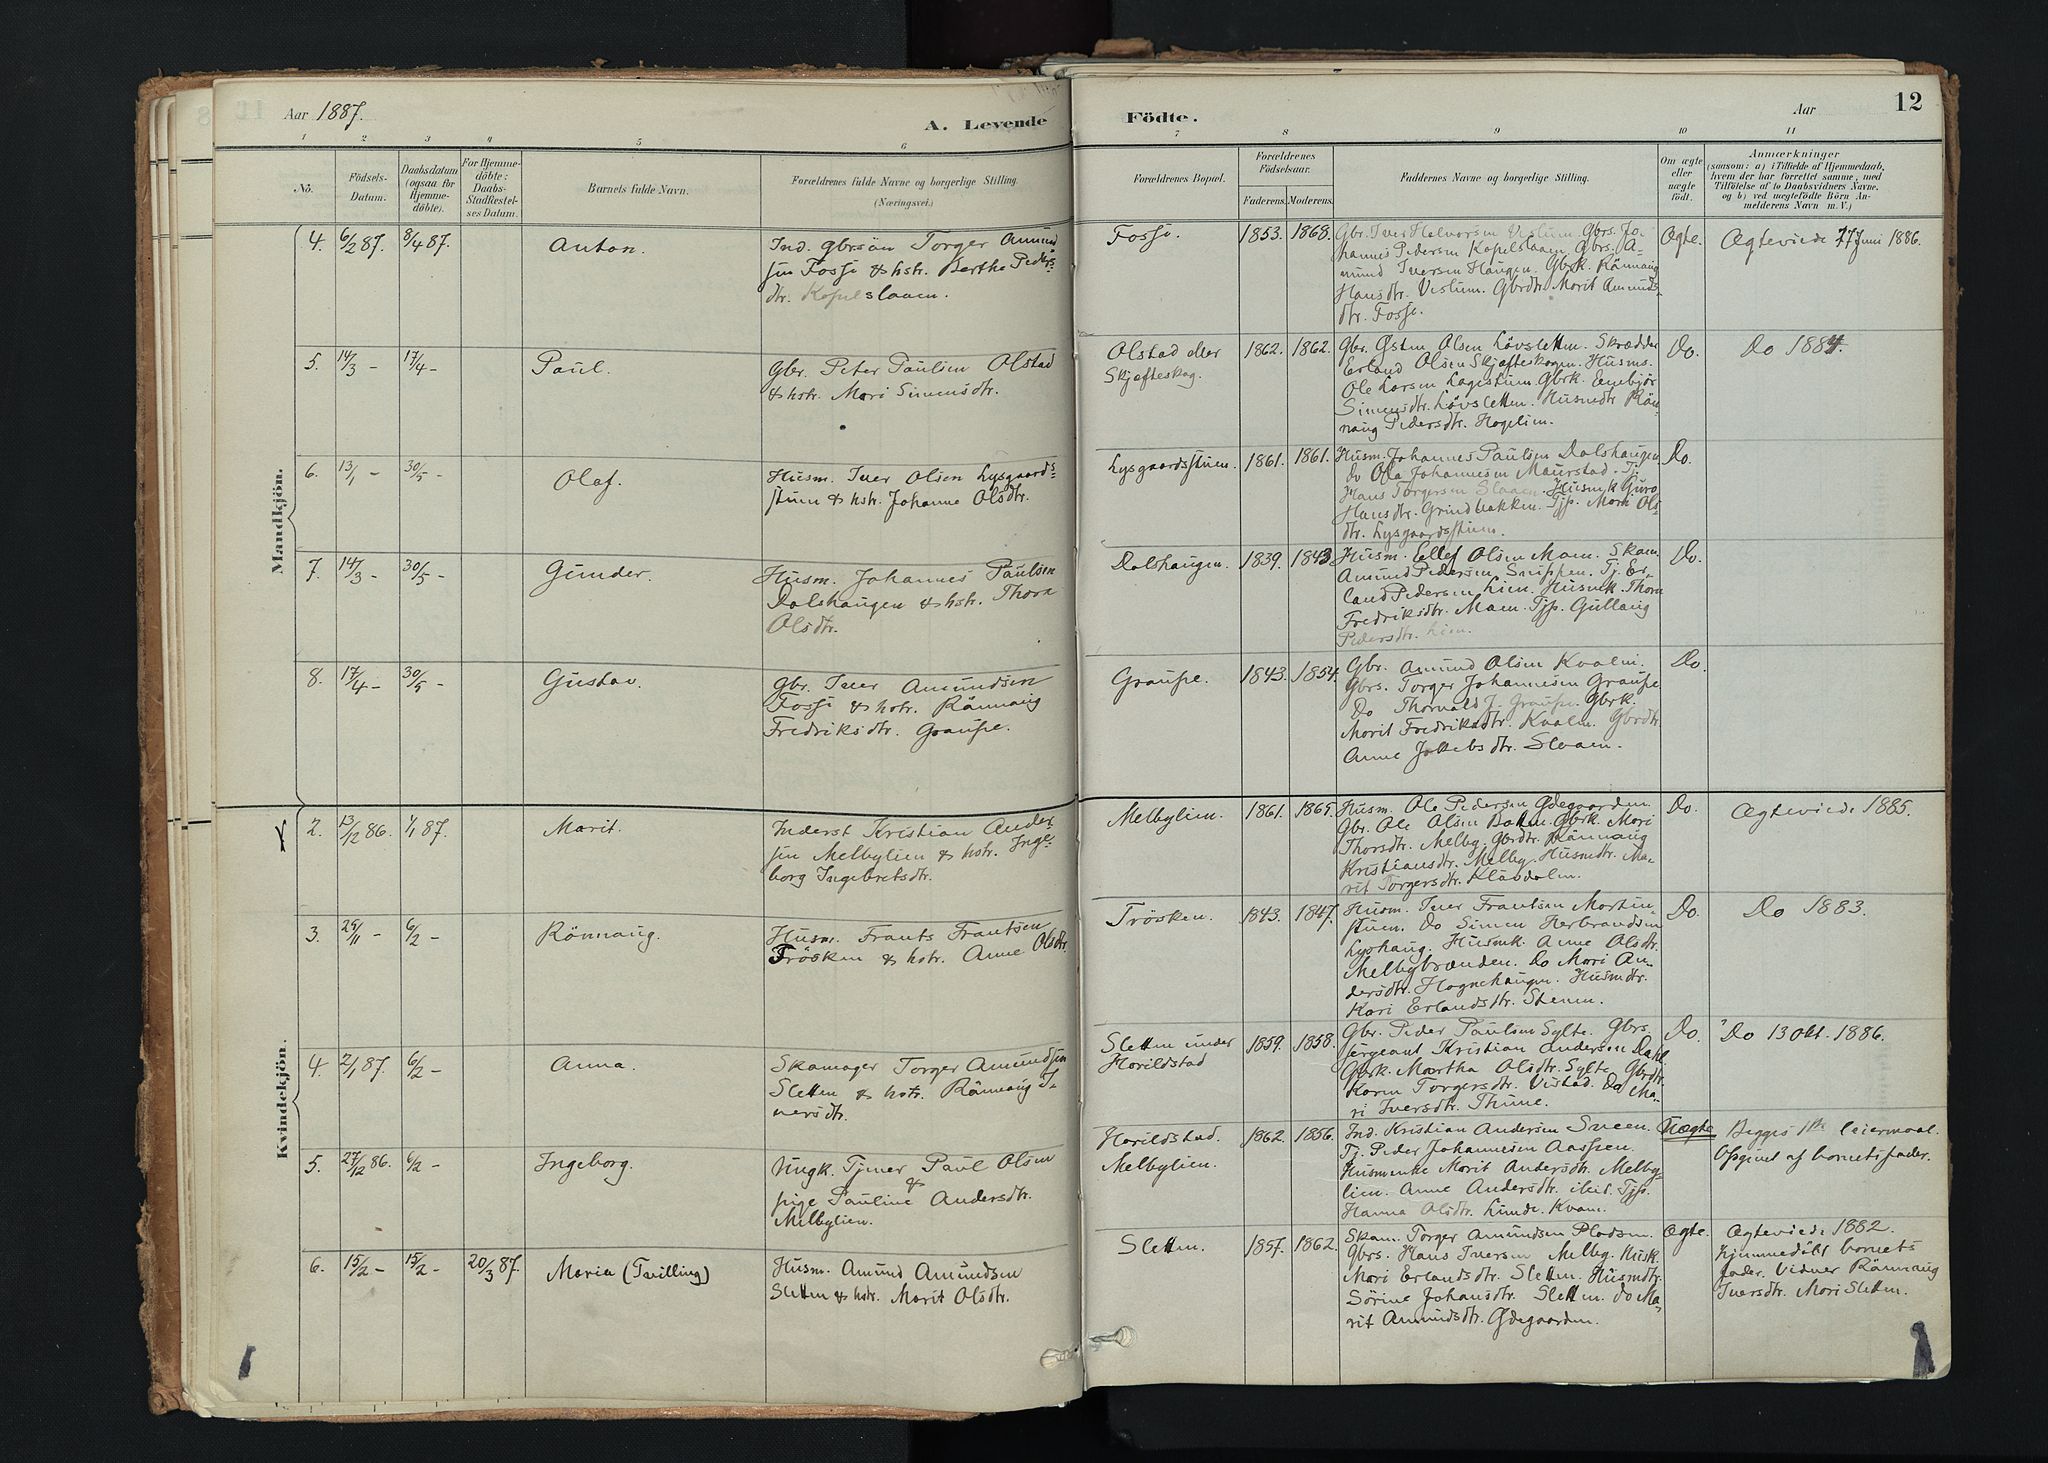 Aar 1887.
A. Levende
Födte.
Aar
12
1 2 3 4 5 6 7 8 9 10 11
No.
Födsels-
Datum.
Daabsdatum
(ogsaa for
Hjemme-
döbte).
For Hjemme-
döbte:
Daabs-
Stadfæstel-
ses Datum.
Barnets fulde Navn.
Forældrenes fulde Navne og borgerlige Stilling.
(Næringsvei.)
Forældrenes Bopæl.
Forældrenes
Födselsaar.
Faderens. Moderens.
Faddernes Navne og borgerlige Stilling.
Om ægte
eller
uægte
födt.
Anmærkninger
(saasom: a) i Tilfælde af Hjemmedaab,
hvem der har forrettet samme, med
Tilföielse af to Daabsvidners Navne,
og b) ved uægtefödte Börn An-
melderens Navn m. V.)
Mandkjön.
4. 6/2 87. 8/4 87.
Anton
Ind. gbrsön Torger Amund
sen Fosse & hstr. Berthe Peders
dtr. Kopelslaaen.
Fosse.
1853. 1868.
Gbr. Iver Halvorsen Veslum. Gbrs. Jo-
hannes Pedersen Kopelslaaen. Gbrs. A-
mund Iversen Haugen. Gbrk. Rönnaug
Hansdtr. Veslum. Gbrdtr. Marit Amunds-
dtr. Fosse.
Ægte.
Ægteviede 17 Juni 1886.
5. 14/3 - 17/4 -
Paul.
Gbr. Peter Paulsen Olstad
& hstr. Mari Simensdtr.
Olstad eller
Skjefteskog.
1862. 1862.
Gbr. Østen Olsen Lövsletten. Skrædder
Erland Olsen Skjefteskogen. Husms.
Ole Larsen Lagestuen. Gbrk. Embjör
Simensdtr. Lövsletten. Husmdtr Rön-
naug Pedersdtr. Hagelien.
Do.
Do 1884.
6. 13/1 - 30/5 -
Olaf.
Husm. Iver Olsen Lysgaards
stuen & hstr. Johanne Olsdtr.
Lysgaardsstuen.
1861. 1861.
Husm. Johannes Paulsen Dalshaugen
Do Ola Johannesen Maurstad. Tj.
Hans Torgersen Slaaen. Husmk Guro
Hansdtr. Grindbakken. Tjp. Marit Ols-
dtr. Lysgaardsstuen.
Do.
7. 14/3 - 30/5 -
Gunder.
Husm. Johannes Paulsen
Dalshaugen & hstr. Thora
Olsdtr.
Dalshaugen.
1839. 1843.
Husm. Ellef Olsen Moen. Skom.
Amund Pedersen Snippen. Tj. Er-
land Pedersen Lien. Husmk. Thora
Fredriksdtr. Moen. Tjp. Gullaug
Pedersdtr. Lien.
Do.
8. 17/4 - 30/5 -
Gustav.
Gbr. Iver Amundsen
Fosse & hstr. Rönnaug
Fredriksdtr. Graupe.
Graupe.
1843. 1854.
Gbr. Amund Olsen Kvalen.
Gbrs. Torger Johannesen Graupe
Do Thorvald J. Graupe. Gbrk.
Marit Fredriksdtr. Kvalen. Gbrdtr
Anne Jakobsdtr. Slaaen.
Do.
Kvindekjön.
2. 13/12 86. 1/1 87.
Marit.
Inderst Kristian Ander-
sen Melbylien & hstr. Inge-
borg Ingebretsdtr.
Melbylien.
1861. 1865.
Husm. Ole Pedersen Ødegaarden.
Gbr. Ole Olsen Bakken. Gbrk. Mari
Thorsdtr. Melby. Gbrdtr. Rönnaug
Kristiansdtr. Melby. Husmdtr. Ma-
rit Torgersdtr. Klævdalen.
Do.
Ægteviede 1885.
3. 29/11 - 6/2 -
Rönnaug.
Husm. Frants Frantsen
Trösken & hstr. Anne Olsdtr.
Trösken.
1843. 1847.
Husm. Iver Frantsen Martin-
stuen. Do Simen Herbrandsen
Lyshaug. Husmk. Anne Olsdtr.
Melbybrænden. Do Mari An-
dersdtr. Hagnehaugen. Husmdtr.
Kari Erlandsdtr. Stenen.
Do.
Do 1883.
4. 2/1 87. 6/2 -
Anna.
Skomager Torger Amundsen
Sletten & hstr. Rönnaug I-
versdtr.
Sletten under
Horildstad
1859. 1858.
Gbr. Peder Paulsen Sylte. Gbrs.
sergeant Kristian Andersen Dahl
Gbrk. Martha Olsdtr. Sylte. Gbrdtr.
Karen Torgersdtr. Vistad. Do Ma-
ri Iversdtr. Thune.
Do.
Do 13 Okt. 1886.
5. 27/12 86. 6/2 -
Ingeborg.
Ungk. Tjener Paul Olsen
&
pige Pauline Andersdtr.
Melbylien.
Horildstad.
Melbylien.
1862. 1856.
Ind. Kristian Andersen Sveen.
Tj. Peder Johannesen Aaspen.
Husmenke Marit Andersdtr. Melby-
lien. Anne Andersdtr. ibid. Tjp.
Hanna Olsdtr. Lunde. Kvam.
Uægte
Begges 1ste leiermaal.
Opgivet af barnets fader.
6. 15/2 - 15/2 - 20/3 87.
Maria (Tvilling)
Husm. Amund Amundsen
Sletten & hstr. Marit Olsdtr.
Sletten.
1857. 1862.
Skom. Torger Amundsen Pladsen.
Gbrs. Hans Iversen Melby. Husk.
Mari Erlandsdtr. Sletten. Husmdtr.
Sörine Johansdtr. Sletten. Do Ma-
rit Amundsdtr. Ødegaarden.
Ægte.
Ægteviede 1882.
Hjemmedöbt barnets
fader. Vidner Rönnaug
Iversdtr. Mari Sletten.